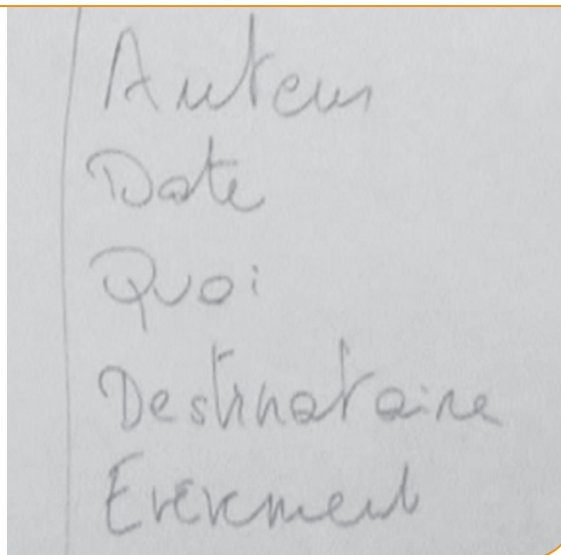 Auteur
Date
Quoi
Destinataire
Evenement